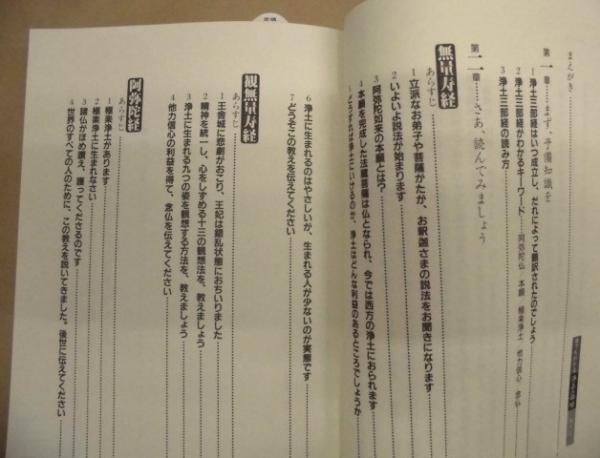 まえがき
第一章──まず、予備知識を
1 浄土三部経はいつ成立し、だれによって翻訳されたのでしょう
2 浄土三部経がわかるキーワード──阿弥陀仏 本願 極楽浄土 他力信心 念仏
3 浄土三部経の読み方
第二章──さあ、読んでみましょう
無量寿経
あらすじ
1 立派なお弟子や菩薩がたが、お釈迦さまの説法をお聞きになります
2 いよいよ説法が始まります
3 阿弥陀如来の本願とは?
4 本願を完成した法蔵菩薩は仏となられ、今では西方の浄土におられます
5 どうすれば浄土にいけるのか、浄土はどんな利益のあるところでしょうか
6 浄土に生まれるのはやさしいが、生まれる人が少ないのが実態です
7 どうぞこの教えを伝えてください
観無量寿経
あらすじ
1 王舎城に悲劇がおこり、王妃は錯乱状態におちいりました
2 精神を統一し、心をしずめる十三の観想法を、教えましょう
3 浄土に生まれる九つの姿を観想する方法を、教えましょう
4 他力信心の利益を得て、念仏を伝えてください
阿弥陀経
あらすじ
1 極楽浄土があります
2 極楽浄土に生まれなさい
3 諸仏がほめ讃え、護ってくださるのです
4 世界のすべての人のために、この教えを説いてきました。後世に伝えてください